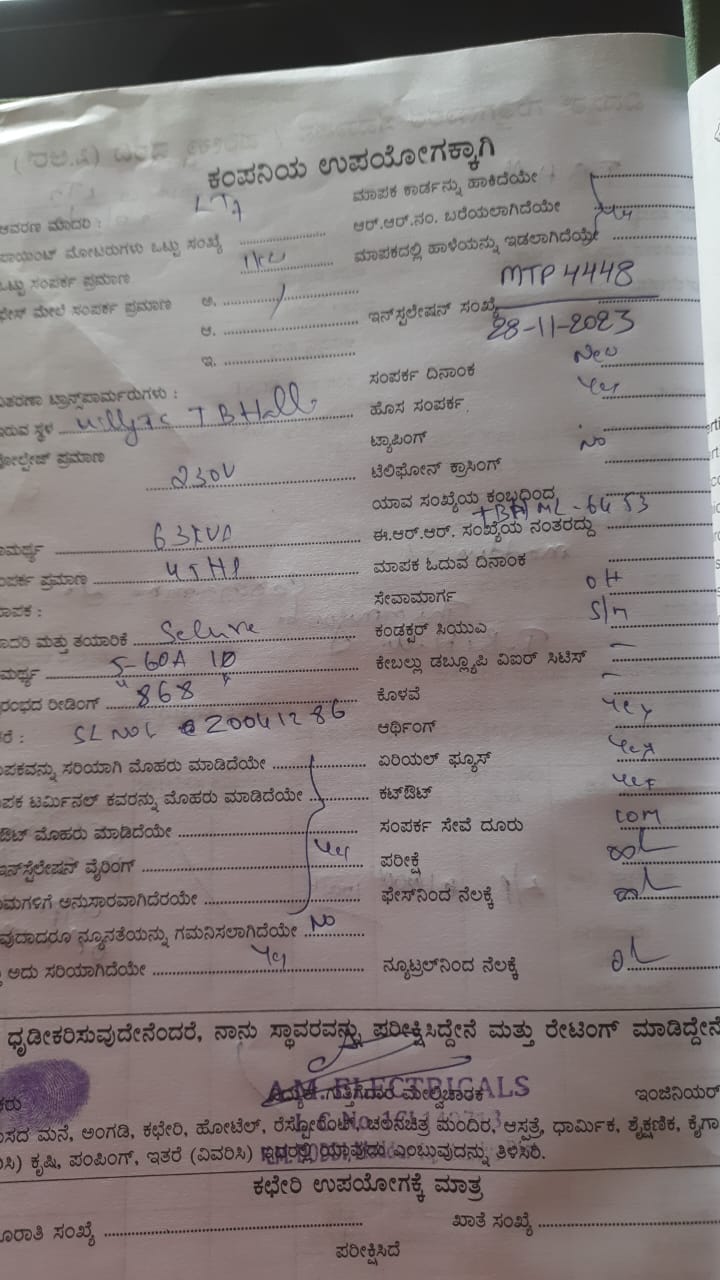 ಕಂಪನಿಯ ಉಪಯೋಗಕ್ಕಾಗಿ
ಆವರಣ ಮಾದರಿ : LT
ಮಾಪಕ ಕಾರ್ಡನ್ನು ಹಾಕಿದೆಯೇ
ಪಾಯಿಂಟ್ ಮೋಟರುಗಳು ಒಟ್ಟು ಸಂಖ್ಯೆ
ಆರ್.ಆರ್.ನಂ. ಬರೆಯಲಾಗಿದೆಯೇ
ಒಟ್ಟು ಸಂಪರ್ಕ ಪ್ರಮಾಣ
ಮಾಪಕದಲ್ಲಿ ಹಾಳೆಯನ್ನು ಇಡಲಾಗಿದೆಯೇ
ಫೇಸ್ ಮೇಲೆ ಸಂಪರ್ಕ ಪ್ರಮಾಣ ಅ.
ಇನ್‌ಸ್ಟಲೇಷನ್ ಸಂಖ್ಯೆ MTP 4448
ಆ.
28-11-2023
ಇ.
ಸಂಪರ್ಕ ದಿನಾಂಕ New
ವಿತರಣಾ ಟ್ರಾನ್ಸ್‌ಫಾರ್ಮರುಗಳು :
ಹೊಸ ಸಂಪರ್ಕ Yes
ಇರುವ ಸ್ಥಳ TB Halli
ಟ್ಯಾಪಿಂಗ್
ವೋಲ್ಟೇಜ್ ಪ್ರಮಾಣ 230V
ಟೆಲಿಫೋನ್ ಕ್ರಾಸಿಂಗ್ No
ಯಾವ ಸಂಖ್ಯೆಯ ಕಂಬದಿಂದ
ಸಾಮರ್ಥ್ಯ 63KVA
ಈ.ಆರ್.ಆರ್. ಸಂಖ್ಯೆಯ ನಂತರದ್ದು TBHML-6453
ಸಂಪರ್ಕ ಪ್ರಮಾಣ 45HP
ಮಾಪಕ ಓದುವ ದಿನಾಂಕ
ಮಾಪಕ :
ಸೇವಾಮಾರ್ಗ OH
ಮಾದರಿ ಮತ್ತು ತಯಾರಿಕೆ
ಕಂಡಕ್ಟರ್ ಸಿಯುಎ S/M
ಸಾಮರ್ಥ್ಯ 5-60A 1Ø
ಕೇಬಲ್ಲು ಡಬ್ಲ್ಯೂಪಿ ವಿಐರ್ ಸಿಟಿಸ್ –
ಪ್ರಾರಂಭದ ರೀಡಿಂಗ್ "868"
ಕೊಳವೆ –
ಇತರೆ : SL NO 20041286
ಆರ್ಥಿಂಗ್ Yes
ಮಾಪಕವನ್ನು ಸರಿಯಾಗಿ ಮೊಹರು ಮಾಡಿದೆಯೇ
ಏರಿಯಲ್ ಫ್ಯೂಸ್ Yes
ಮಾಪಕ ಟರ್ಮಿನಲ್ ಕವರನ್ನು ಮೊಹರು ಮಾಡಿದೆಯೇ
ಕಟ್‌ಔಟ್ Yes
ಕಟ್‌ಔಟ್ ಮೊಹರು ಮಾಡಿದೆಯೇ
ಸಂಪರ್ಕ ಸೇವೆ ದೂರು
ಇನ್‌ಸ್ಟಲೇಷನ್ ವೈರಿಂಗ್ Yes
ಪರೀಕ್ಷೆ
ನಿಯಮಗಳಿಗೆ ಅನುಸಾರವಾಗಿದೆರಯೇ
ಫೇಸ್‌ನಿಂದ ನೆಲಕ್ಕೆ
ಯಾವುದಾದರೂ ನ್ಯೂನತೆಯನ್ನು ಗಮನಿಸಲಾಗಿದೆಯೇ No
ಅದು ಸರಿಯಾಗಿದೆಯೇ Yes
ನ್ಯೂಟ್ರಲ್‌ನಿಂದ ನೆಲಕ್ಕೆ
ಧೃಡೀಕರಿಸುವುದೇನೆಂದರೆ, ನಾನು ಸ್ಥಾವರವನ್ನು ಪರೀಕ್ಷಿಸಿದ್ದೇನೆ ಮತ್ತು ರೇಟಿಂಗ್ ಮಾಡಿದ್ದೇನೆ
A.M. ELECTRICALS
ವಿದ್ಯುತ್ ಗುತ್ತಿಗೆದಾರ ಮೇಲ್ವಿಚಾರಕ ಇಂಜಿನಿಯರ್
ವಾಸದ ಮನೆ, ಅಂಗಡಿ, ಕಛೇರಿ, ಹೋಟೆಲ್, ರೆಸ್ಟೋರೆಂಟ್, ಚಲನಚಿತ್ರ ಮಂದಿರ, ಆಸ್ಪತ್ರೆ, ಧಾರ್ಮಿಕ, ಶೈಕ್ಷಣಿಕ, ಕೈಗಾ
ಕೃಷಿ, ಪಂಪಿಂಗ್, ಇತರೆ (ವಿವರಿಸಿ) ಇದರಲ್ಲಿ ಯಾವುದು ಎಂಬುವುದನ್ನು ತಿಳಿಸಿರಿ.
ಕಛೇರಿ ಉಪಯೋಗಕ್ಕೆ ಮಾತ್ರ
ಸಂಖ್ಯೆ ಖಾತೆ ಸಂಖ್ಯೆ
ಪರೀಕ್ಷಿಸಿದೆ